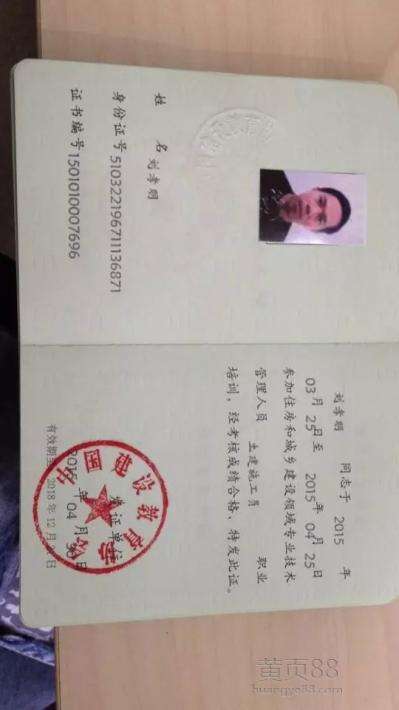 姓 名 刘孝明
身份证号 510322196711136871
证书编号 1501010007696
刘孝明 同志于 2015 年
03月 25日至 2015年 04月 25日
参加住房和城乡建设领域专业技术
管理人员 土建施工员 职业
培训，经考核成绩合格，特发此证。
发证单位
有效期至 2018 年 12 月
中国建设教育协会
黄页88
huangye88.com